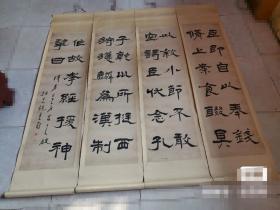 臣即自以奉錢
脩上案食醊具
以敘小節不敢
空謁臣伏念孔
子乾坤所挺西
狩獲麟為漢制
作故孝經援神
挈曰